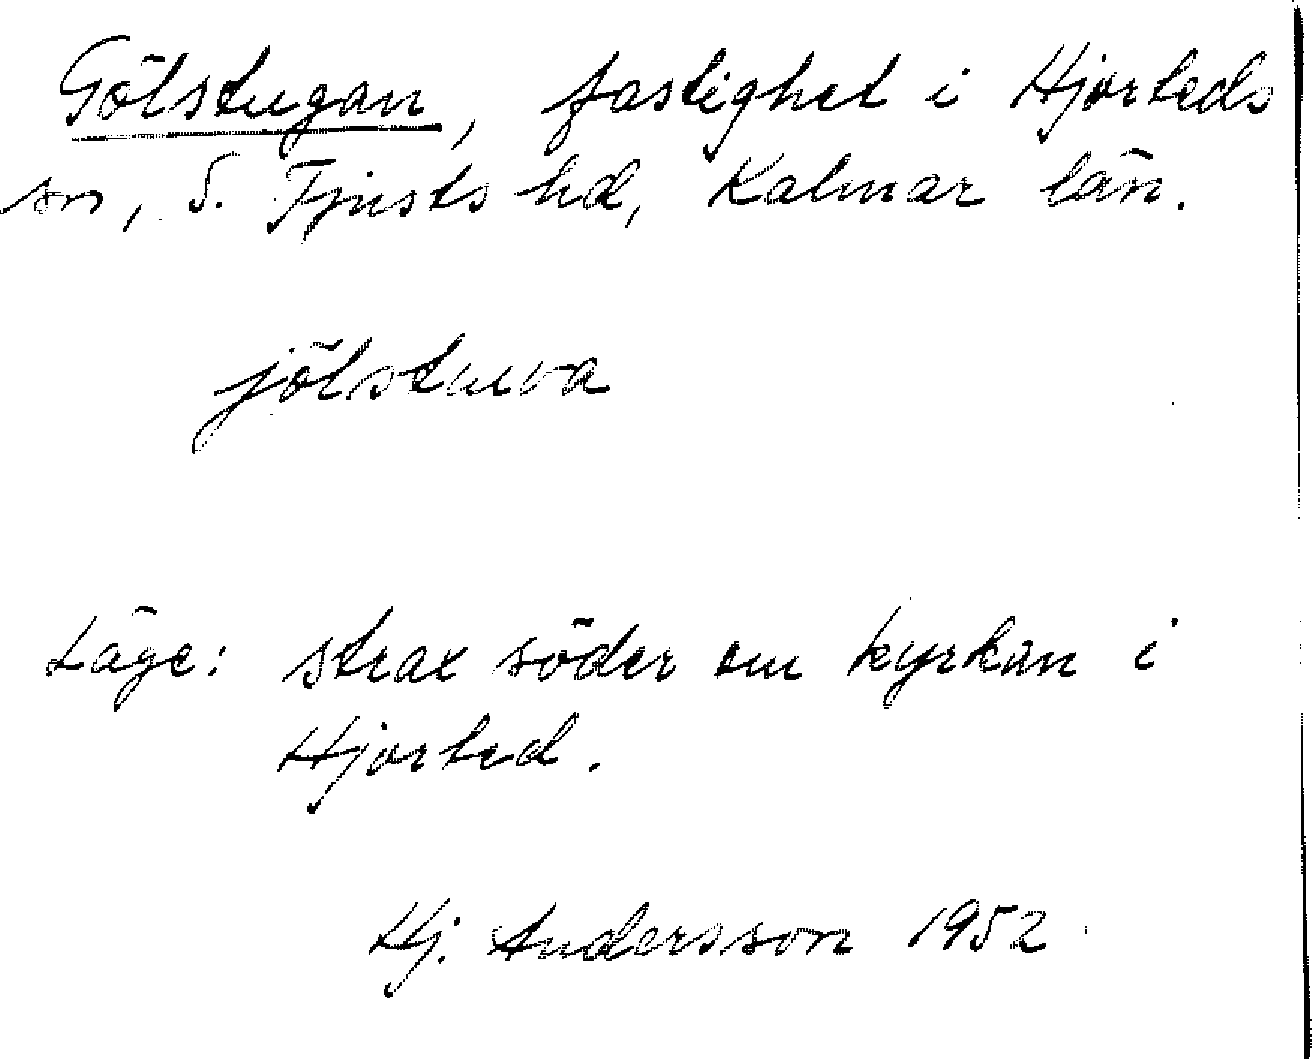 Gölstugan, fastighet i Hjorteds
sn, S. Tjusts hd, Kalmar län.
jölstuva
Läge: strax söder om kyrkan i
Hjorted.
Hj. Andersson 1952